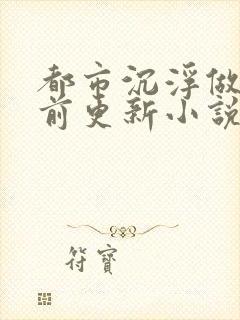 都市沉浮做
前更新小說
符寶